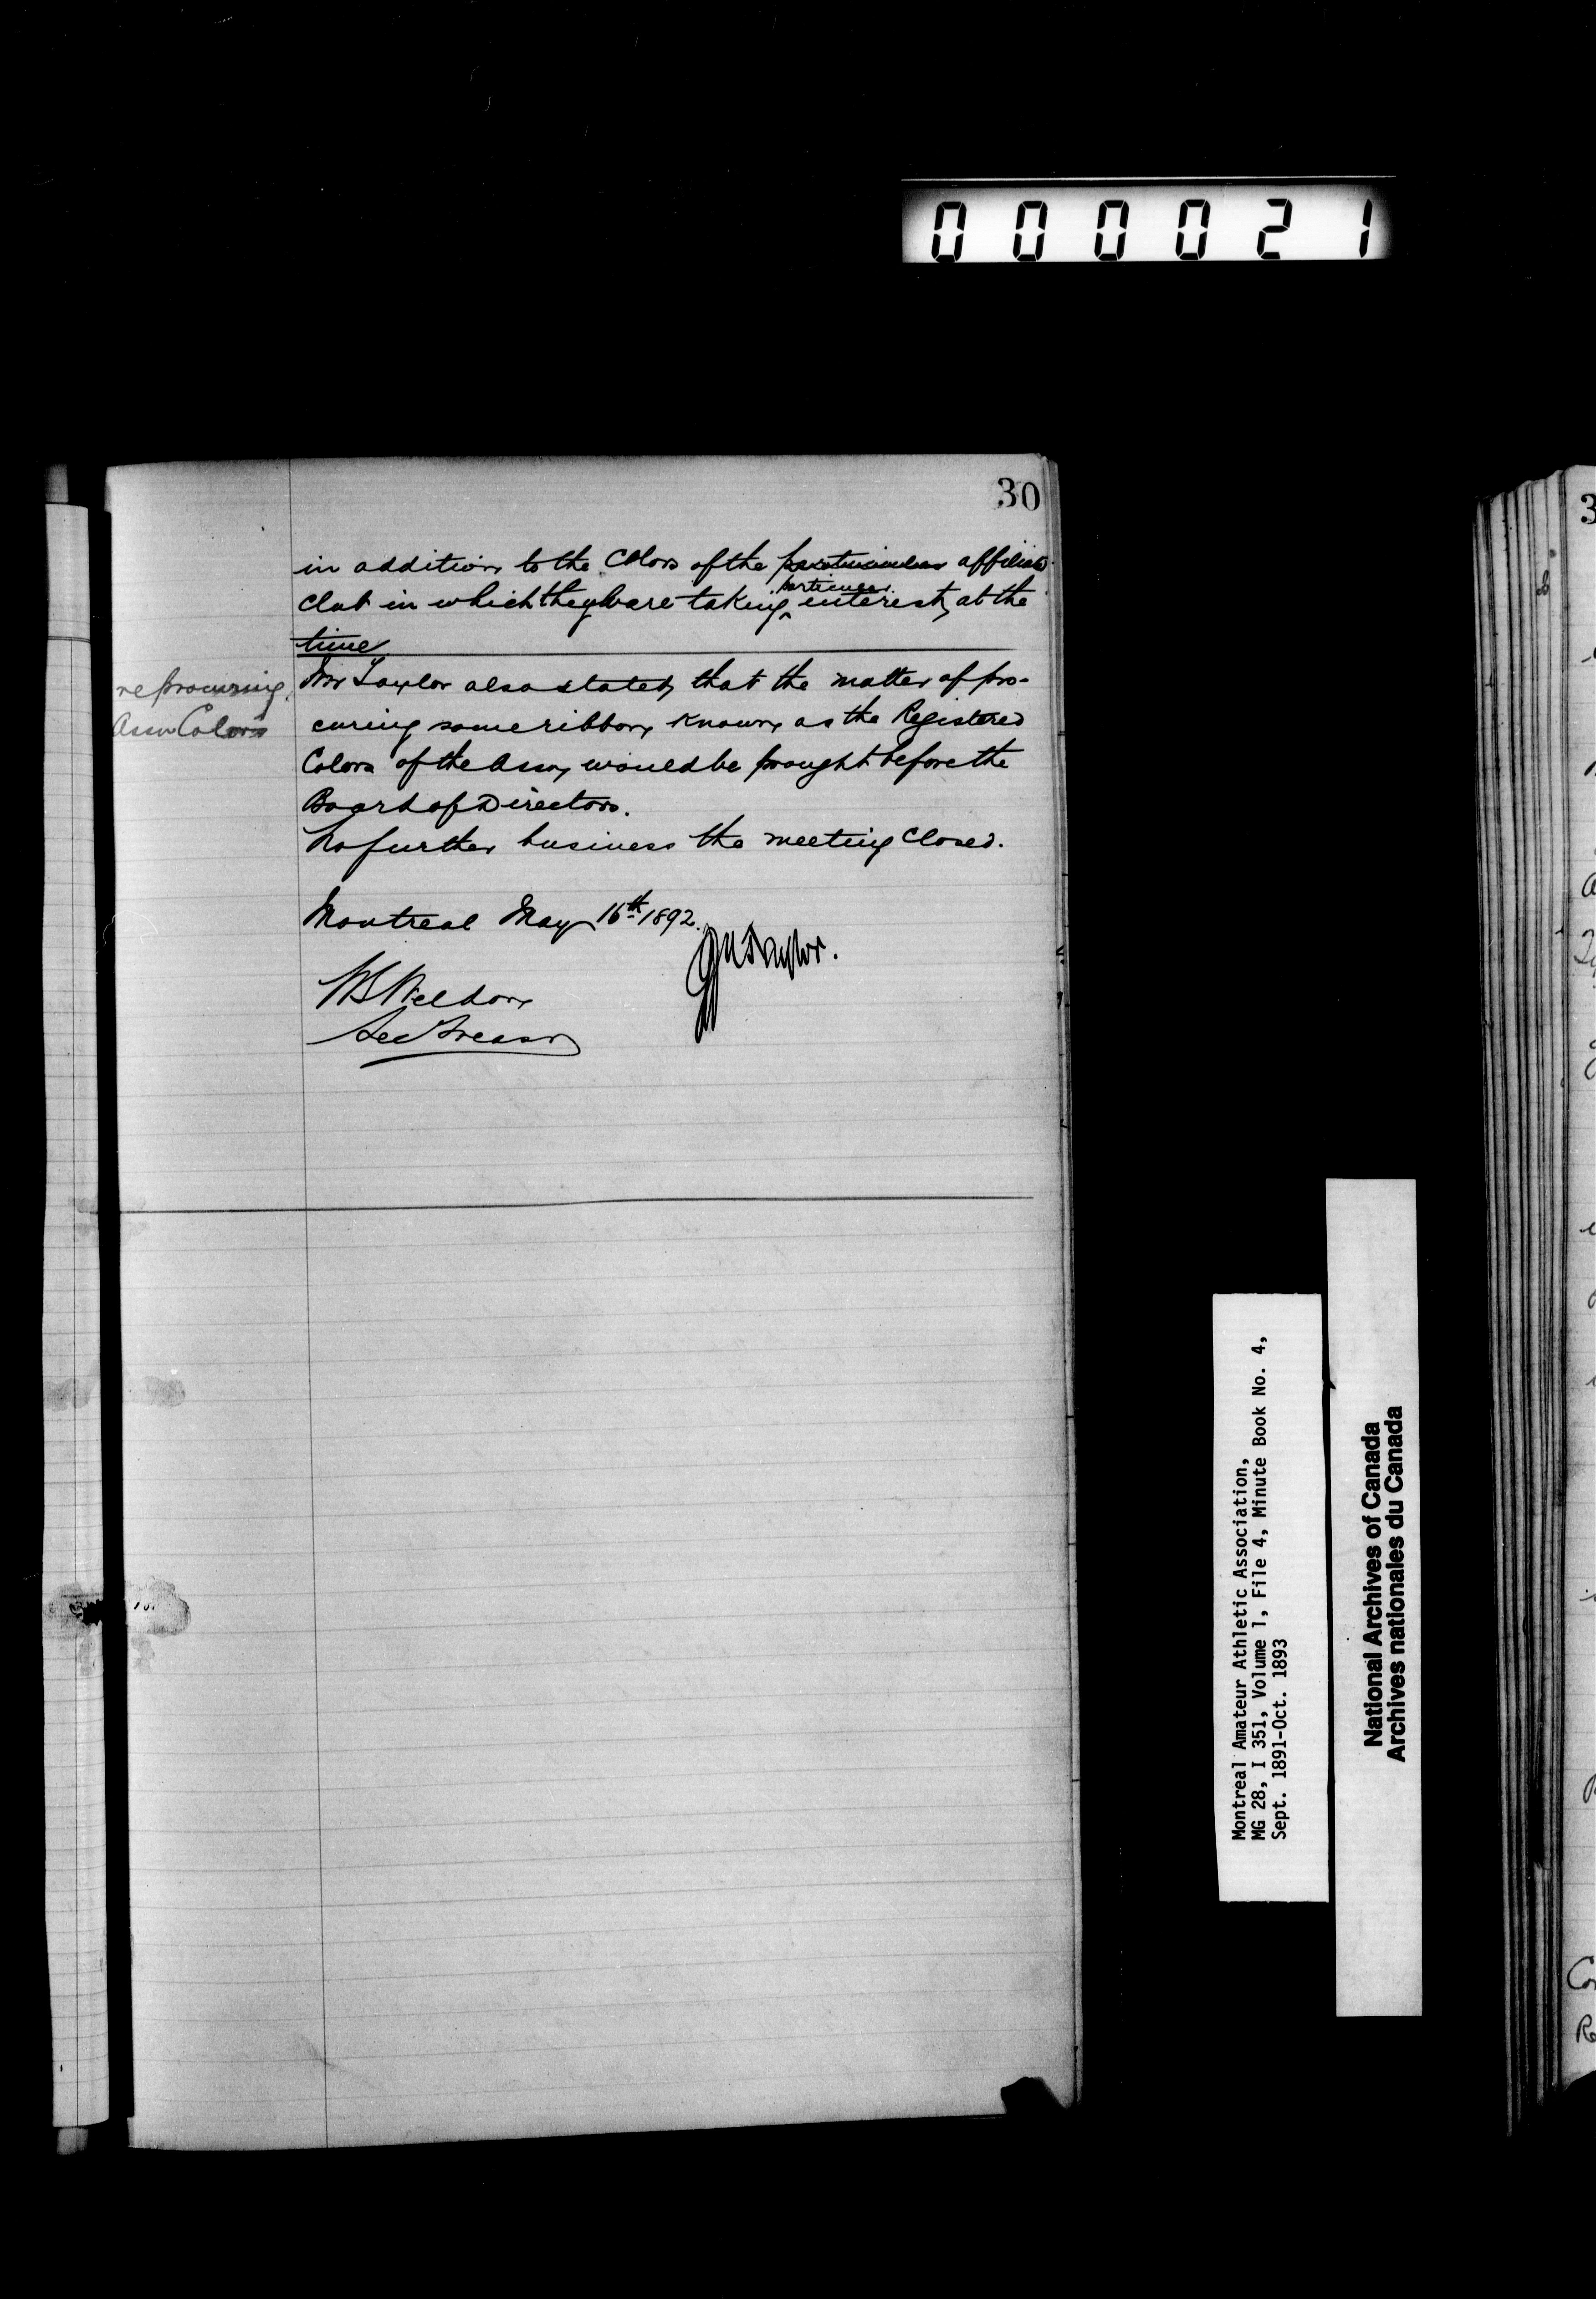 000021
30
in addition to the Colors of the particular affiliated
Club in which they are taking particular interest, at the
time
re procuring
Assn Colors
Mr Taylor also stated, that the matter of pro-
curing some ribbon, known, as the Registered
Colors of the Assn, would be brought before the
Board of Directors.
No further business the meeting closed.
Montreal May 16th 1892.
Taylor.
Weldon
Sec Treasr
Montreal Amateur Athletic Association,
MG 28, I 351, Volume 1, File 4, Minute Book No. 4,
Sept. 1891-Oct. 1893
National Archives of Canada
Archives nationales du Canada